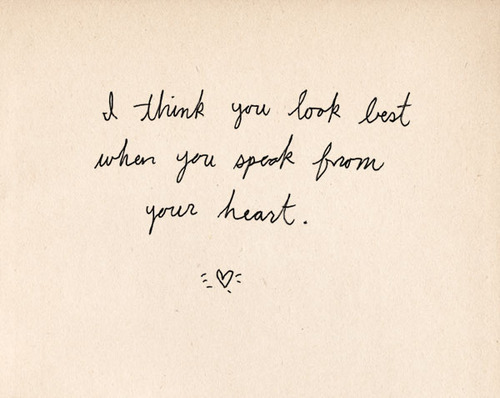 I think you look best
when you speak from
your heart.